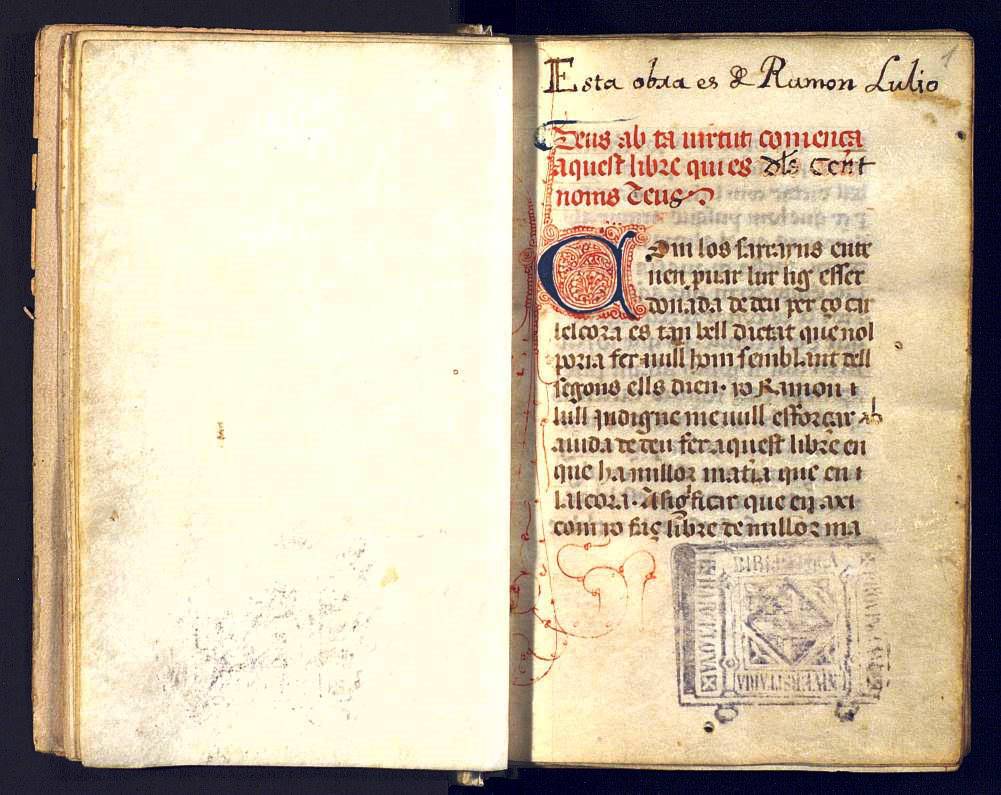 1
Esta obra es de Ramon Lulio
Deus ab ta uirtut comença
aquest libre qui es dls Cent
noms Deus
Com los sarrayns ente
nen puar lur lig esser
donada de deu per ço car
lalcora es tan bell dictat que nol
poria fer null hom semblant dell
segons ells dien. jo Ramon
lull indigne me uull esforçar ab
aiuda de deu fer aquest libre en
que ha millor matia que en
lalcora. A significar que en axi
com jo faç libre de millor ma
BIBLIOTECA
UNIVERSITARIA
BARCELONA